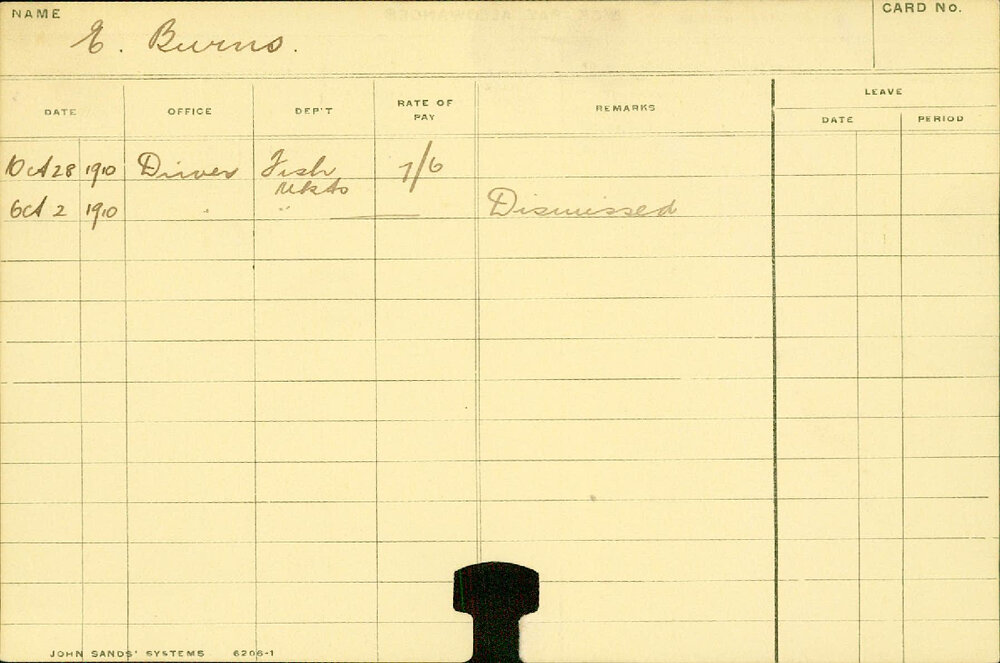 NAME
E. Burns.
CARD No.
DATE OFFICE DEP'T RATE OF PAY REMARKS LEAVE
DATE PERIOD
Oct 28 1910 Driver Fish Mkts 7/6
Oct 2 1910 " Dismissed
JOHN SANDS' SYSTEMS 6206-1